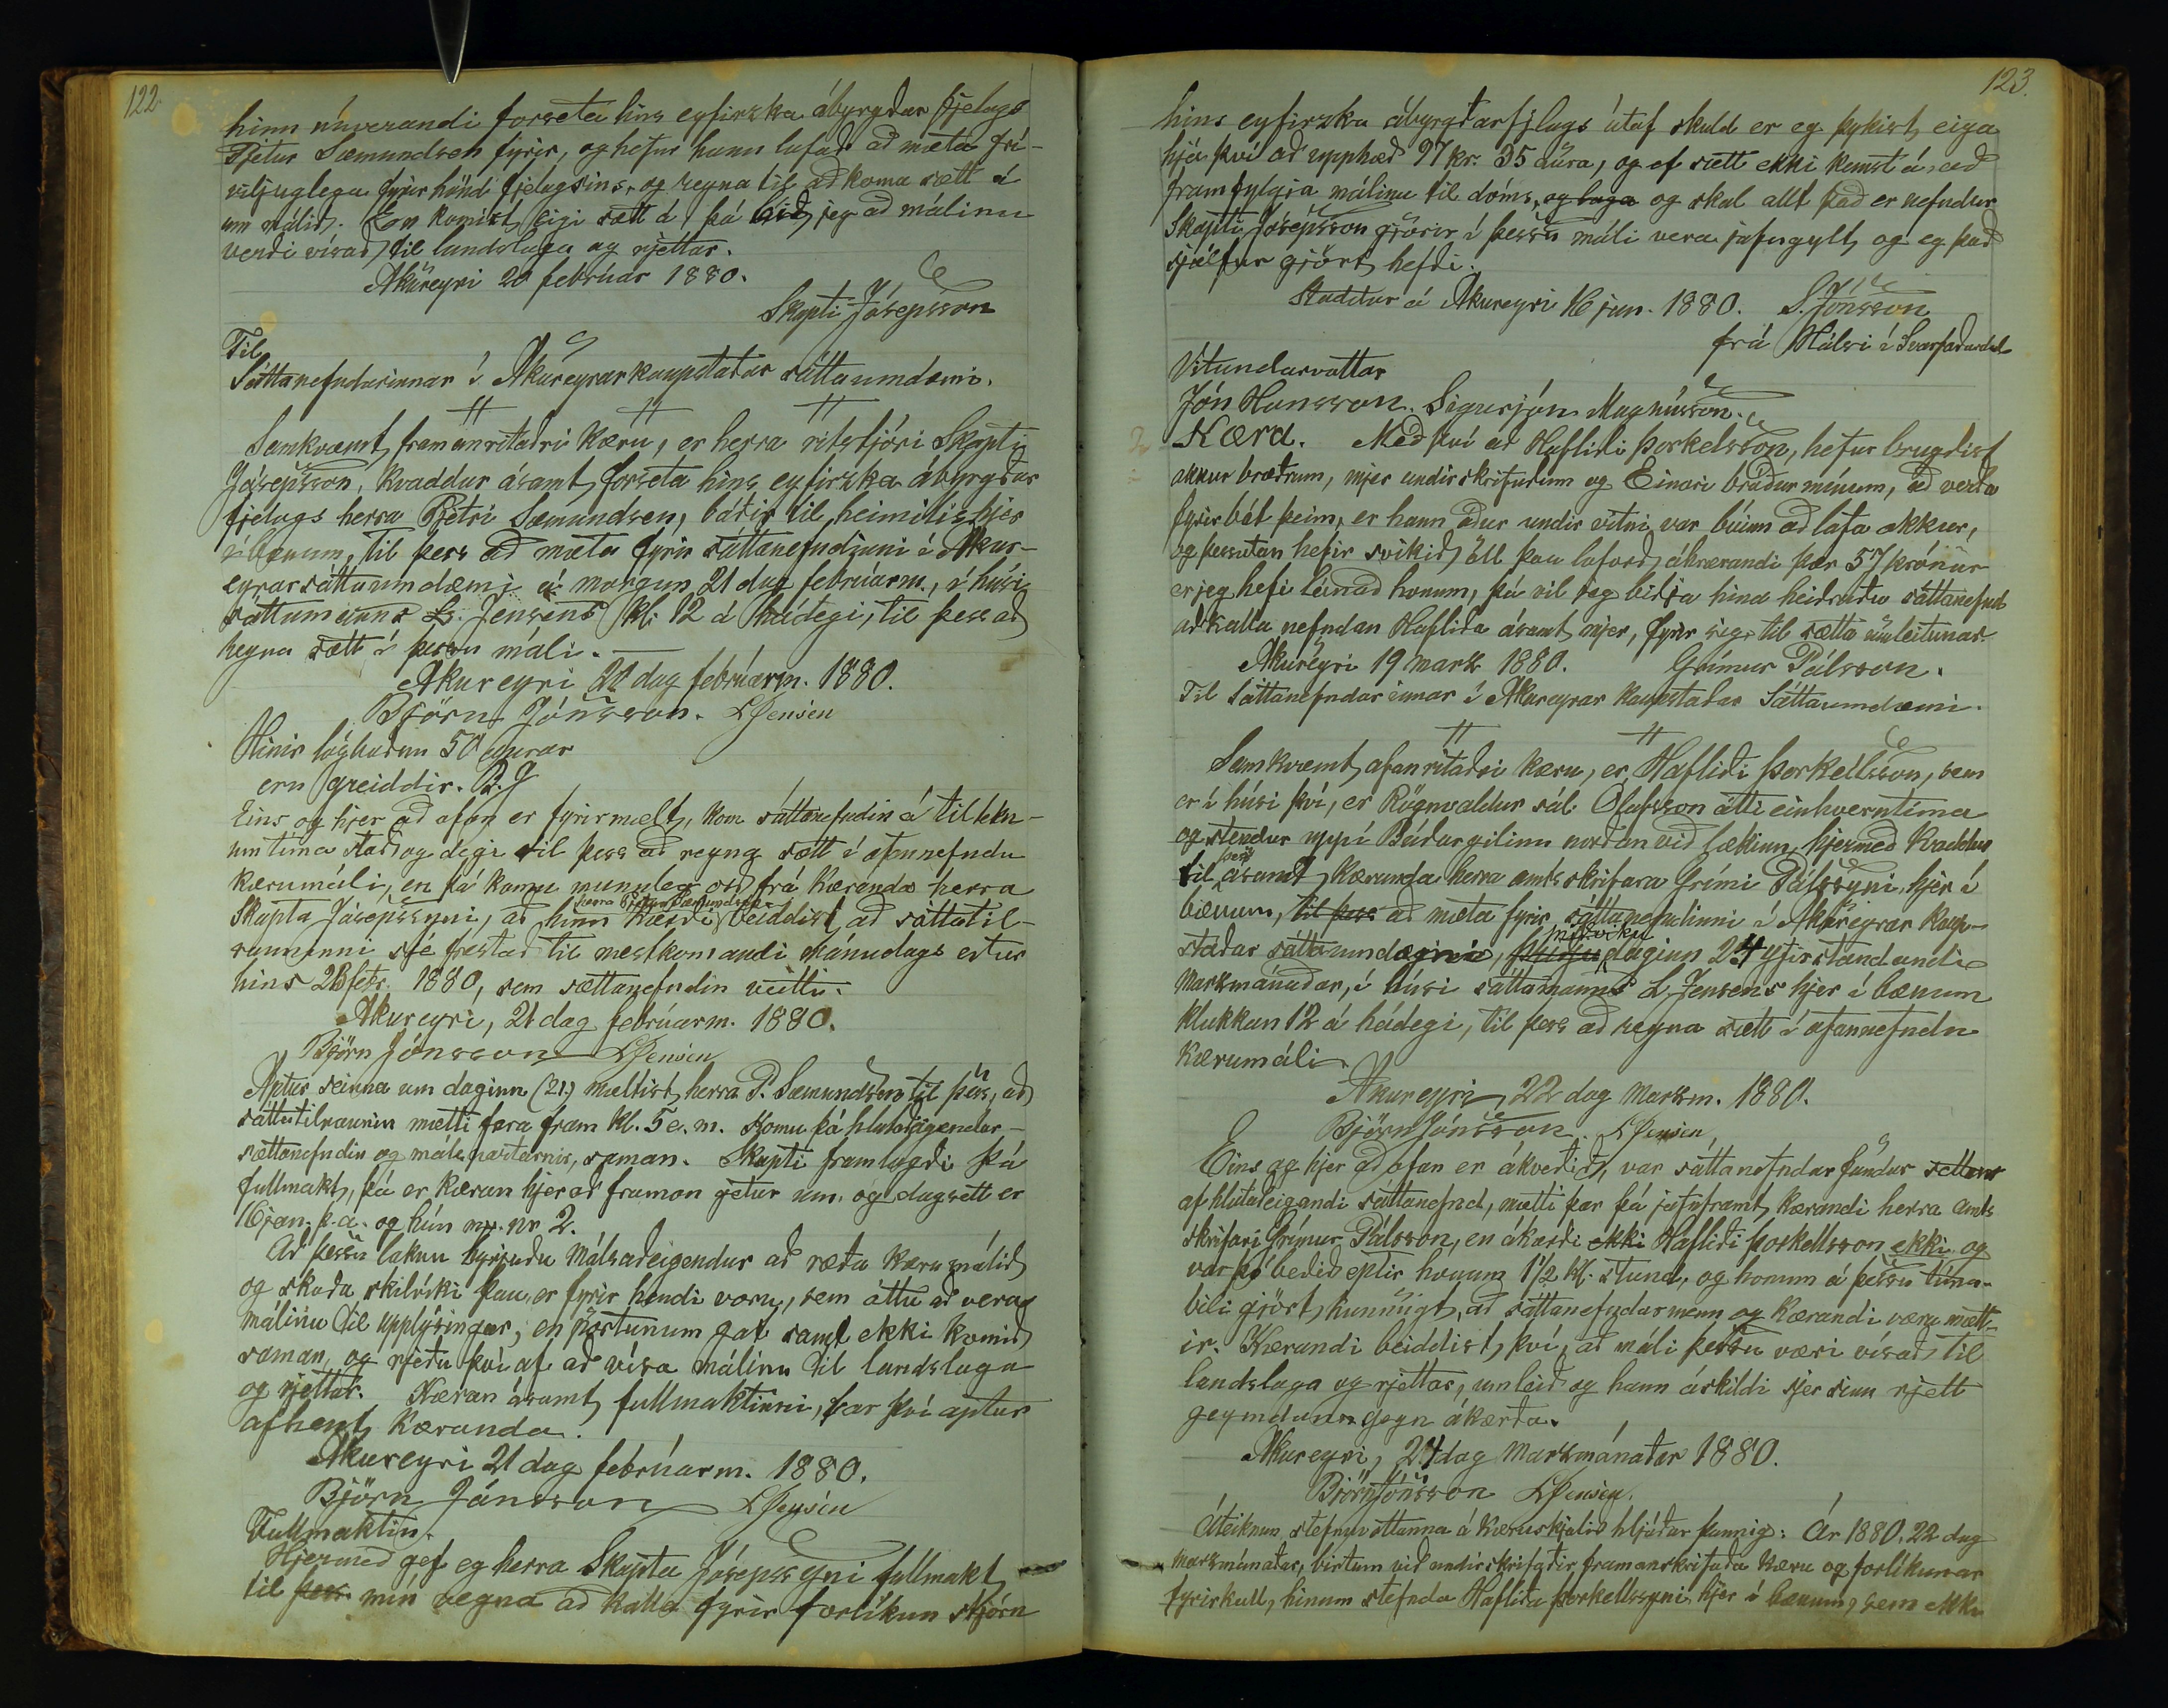 122
hinn núverandi forseta hins eyfirzka ábyrgðar fjelags
Pjetur Sæmundsen fyrir, og hefur hann lofað að mæta frí-
viljuglega fyrir hönd fjelagsins, og reyna til að koma sætt á
um málið. En komist eigi sætt á, þá bið jeg að málinu
verði vísað til landslaga og rjettar.
Akureyri 20 febrúar 1880.
Skapti Jósepsson
Til
Sáttanefndarinnar í Akureyrarkaupstaðar sáttaumdæmi.
Samkvæmt framanritaðri kæru, er herra ritstjóri Skapti
Jósepsson, kvaddur ásamt forseta hins eyfirzka ábyrgðar
fjelags herra Pjetri Sæmundsen, báðir til heimilis hjer
í bænum, til þess að mæta fyrir sáttanefndinni í Akur-
eyrar sáttaumdæmi á morgun 21 dag febrúarm., í húsi
sáttamanns L. Jensens kl. 12 á hádegi, til þess að
reyna sætt í þessu máli.
Akureyri 20 dag febrúarm. 1880.
Björn Jónsson. LJensen
Hinir lögboðnu 50 aurar
eru greiddir. B.J
Eins og hjer að ofan er fyrirmælt, kom sáttanefndin á tiltekn-
um tíma stað og degi til þess að reyna sætt í ofannefndu
kærumáli, en þá komu munnleg orð frá kæranda herra
Skapta Jósepssyni, að hinn kærði herra Pjetur Sæmundsen beiddist að sáttatil-
rauninni sé frestað til næstkomandi mánudags
hins 23 febr. 1880, sem sættanefndin veitti.
Akureyri, 21 dag febrúarm. 1880.
Björn Jónsson LJensen
Aptur seinna um daginn (21.) mæltist herra P. Sæmundsen til þess, að
sáttatilraunin mætti fara fram kl. 5 e. m. Komu þá hlutaðeigendur-
sættanefndin og málspartarnir, saman. Skapti framlagði þá
fullmakt, þá er kæran hjer að framan getur um, og dagsett er
16 jan. þ. a. og hún nr. 2.
Að þessu loknu byrjuðu málsaðeigendur að ræða kærumálið
og skoða skilríki þau, er fyrir hendi voru, sem áttu að vera
málinu til upplýsingar, en pörtunum gat samt ekki komið
saman, og rjeðu því af að vísa málinu til landslaga
og rjettar. Kæran ásamt fullmaktinni, var því aptur
afhent kæranda.
Akureyri 21 dag febrúarm. 1880.
Björn Jónsson LJensen
Fullmaktin.
Hjermeð gef eg herra Skapta Jósepssyni fullmakt
til þess mín vegna að kalla fyrir forlíkun stjórn
123.
hins eyfirzka ábyrgðarfjlags útaf skuld er eg þykist eiga
hjá því að upphæð 97 kr. 35 aura, og ef sætt ekki kemst á, að
framfylgja málinu til dóms, og laga og skal allt það er nefndur
Skapti Jósepsson gjörir í þessu máli vera jafngylt og eg það
sjálfur gjört hefði.
Staddur á Akureyri 16 jan. 1880. S. Jónsson
frá Hálsi í Svarfaðardal
Vitundarvottar
Jón Hansson. Sigurjón Magnússon.
Kæra. Með því að Hafliði Þorkelsson, hefur brugðist
okkur bræðrum, mjer undirskrifuðum og Einari bróður mínum, að verða
fyrir bát þeim, er hann áður undir vitni var búinn að láta okkur,
og þessutan hefir svikið öll þau loforð ákærandi þær 57 krónur
er jeg hefi leinað honum, þá vil jeg biðja hina heiðruðu sáttanefnd
að kalla nefndan Hafliða ásamt mjer, fyrir sig, til sætta umleitunar.
Akureyri 19 marz 1880. Grímur Pálsson.
Til Sáttanefndarinnar í Akureyrar kaupstaðar Sáttaumdæmi.
Samkvæmt ofanritaðri kæru, er Hafliði Þorkellsson, sem
er í húsi því, er Rögnvaldur sál. Ólafsson átti einhverntíma
og stendur uppí Búðargilinu norðan við lækinn, hjermeð kvaddur
til þess ásamt kæranda herra amtsskrifara Grími Pálssyni, hjer í
bænum, til þess að mæta fyrir sáttanefndinni í Akureyrar kaup-
staðar sáttaumdæmi, miðvikudaginn 24 yfirstandandi
Marzmánaðar, í húsi sáttamanns L Jensens hjer í bænum
klukkan 12 á hádegi, til þess að reyna sætt í ofannefndu
kærumáli.
Akureyri, 22 dag Marzm. 1880.
Björn Jónsson. LJensen
Eins og hjer að ofan er ákveðið, var sáttanefndar fundur settur
af hlutaðeigandi sáttanefnd, mætti þar þá jafnframt kærandi herra amts
skrifari Grímur Pálsson, en ákærði ekki Hafliði Þorkellsson ekki og
var þó beðið eptir honum 1 1/2 kl. stund, og honum á þessu tíma-
bili gjört kunnugt, að sáttanefndarmenn og kærandi væru mætt-
ir. Kærandi beiddist því, að máli þessu væri vísað til
landslaga og rjettar, umleið og hann áskildi sjer sinn rjett
geymdann gegn ákærða.
Akureyri, 24 dag Marzmánaðar 1880.
Björn Jónsson LJensen.
Áteiknun stefnuvottanna á kæruskjalið hljóðar þannig: Ár 1880, 22 dag
Marzmánaðar, birtum við undirskrifaðir framanskrifaða kæru og forlíkunar
fyrirkall, hinum stefnda Hafliða Þorkellssyni hjer í bænum, sem ekki